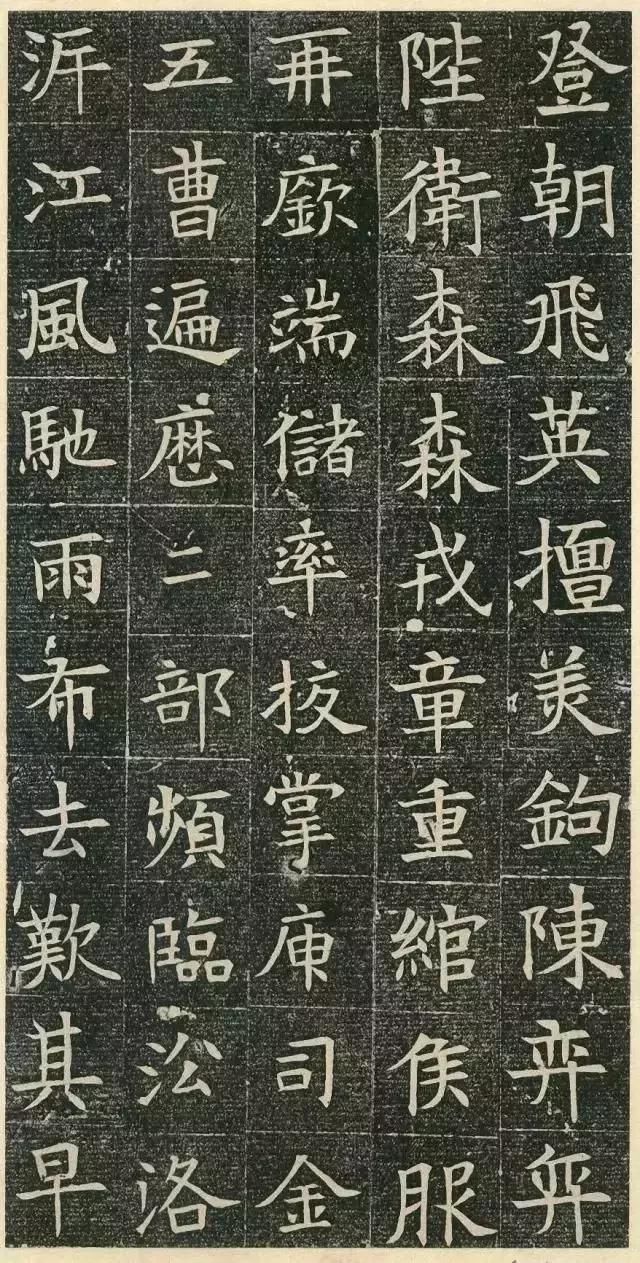 登朝飛英擅美鉤陳弈弈
陛衛森森戎章重綰侯服
再廞端儲率掌司金
五曹遍歷二部頻臨沿洛
泝江風馳雨布去歎其早